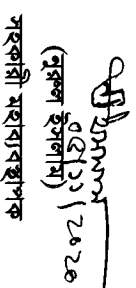 ০৫/১১/২০২০
(নুরুল ইসলাম)
সহকারী মহাব্যবস্থাপক